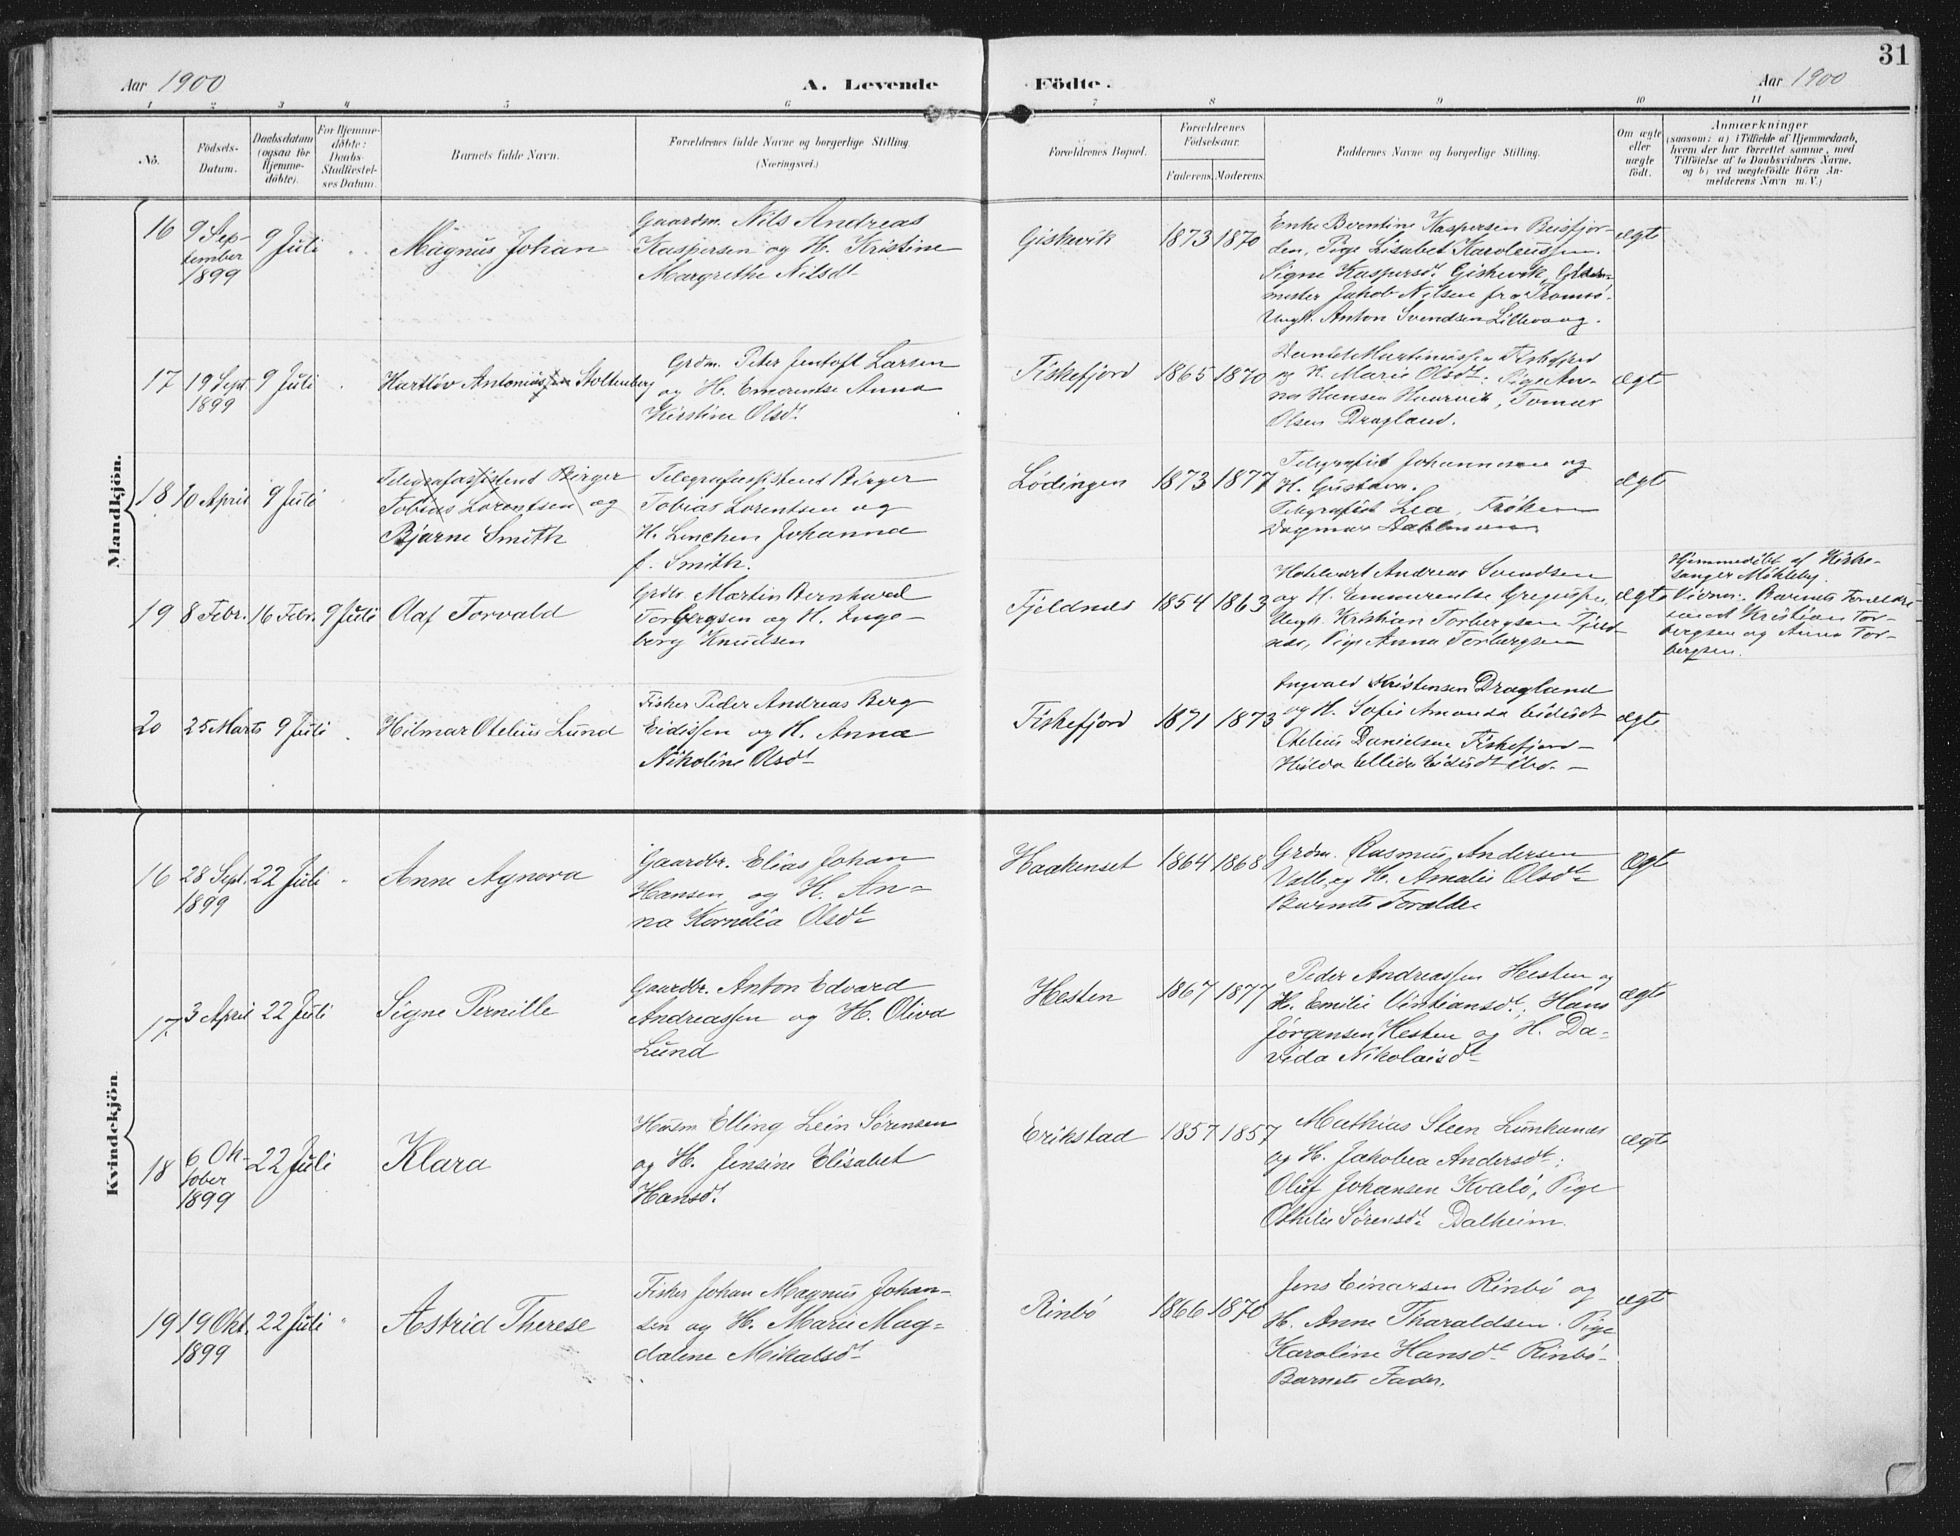 31
Aar 1900
A. Levende
Födte.
Aar 1900
1 2 3 4 5 6 7 8 9 10 11
No.
Födsels-
Datum.
Daabsdatum
(ogsaa for
Hjemme-
döbte).
For Hjemme-
döbte:
Daabs-
Stadfæstel-
ses Datum.
Barnets fulde Navn.
Forældrenes fulde Navne og borgerlige Stilling
(Næringsvei.)
Forældrenes Bopæl.
Forældrenes
Födselsaar.
Faderens. Moderens.
Faddernes Navne og borgerlige Stilling.
Om ægte
eller
uægte
födt.
Anmærkninger
(saasom: a) i Tilfælde af Hjemmedaab,
hvem der har forrettet samme, med
Tilföielse af to Daabsvidners Navne,
og b) ved uægtefödte Börn An-
melderens Navn m. V.)
Mandkjön.
16
9 Sep-
tember
1899
9 Juli
Magnus Johan
Gaardm. Nils Andreas
Kaspersen og H. Kristine
Margrethe Nilsdt
Giskevik
1873
1870
Enke Berntine Kaspersen Beisfjor-
den, Pige Lisabet Karoleussen.
Signe Kaspersdt. Giskevik,
mester Jakob Nilsen fra Tromsö.
Ungk. Anton Svendsen Lillevaag.
ægte
17
19 Sept
1899
9 Juli
Hartlöv Antoniussen Stoltenberg
Grdm. Peter Jentoft Larsen
og H. Emerentse Anna
Kirstine Olsdt.
Fiskefjord
1865
1870
Daniel Martinussen Fiskefjord
og H. Marie Olsdt. Pige An-
na Hansen , Tomas
Olsen Dragland.
ægte
18
10 April
9 Juli
Telegrafassistent Birger
Tobias Lorentsen og
Bjarne Smith
Telegrafassistent Birger
Tobias Lorentsen og
H. Linchen Johanna
f. Smith.
Lödingen
1873
1877
Telegrafist Johannesen og
H. Gustava.
Telegrafist Lea, Fröken
Dagmar Dahlmann
ægte
19
8 Febr.
16 Febr.
9 Juli
Olaf Torvald
Grdbr Martin Bernhard
Torbergsen og H. Inge-
borg Knudsen
Fjeldnæs
1854
1863
Hotelvært Andreas Svendsen
og H. Emmerentse
Ungk. Kristian Torbergsen Fjeld-
næs, Pige Anna Torbergsen
ægte
Hjemmedöbt af Kirke-
sanger Möhleby.
Vidner: Barnets Forældre
samt Kristian Tor-
bergsen og Anna Tor-
bergsen.
20
25 Marts
9 Juli
Hilmar Otelius Lund
Fisker Peder Andreas Berg
Eidissen og H. Anna
Nikoline Olsdt
Fiskefjord
1871
1873
Ingvald Kristensen Dragland
og H. Sofie Amanda Eidisdt
Otelius Danielsen Fiskefjord-
Hilda Ellida Eidisdt ibd. -
ægte
Kvindekjön.
16
28 Sept.
1899
22 Juli
Anne Agnora
Gaardbr. Elias Johan
Hansen og H. An-
na Kornelia Olsdt
Haakenset
1864
1868
Grdm. Rasmus Andersen
Valle, og H. Amalie Olsdt
Barnets Forældre
Ægt
17.
3 April
22 Juli
Signe Pernille
Gaardbr. Anton Edvard
Andreassen og H. Oliva
Lund
Hesten
1867
1877
Peder Andreassen Hesten og
H. Emilie ; Hans
Jörgensen Hesten og H. Da-
vida Nikolaisdt
ægte
18
6 Ok-
tober
1899
22 Juli
Klara
Husm Elling Lein Sörensen
og H. Jensine Elisabet
Hansdt.
Erikstad
1857
1857
Mathias Steen Lunkanes
og H. Jakobea Andersdt.;
Oluf Johansen Kvalö, Pige
Othelie Sörensdt. Dalheim.
ægte
19
19 Okt.
1899
22 Juli
Astrid Therese
Fisker Johan Magnus Johan-
sen og H. Marie Mag-
dalene Mikalsdt
Rinbö
1866
1870
Jens Einarsen Rinbö og
H. Anne Tharaldsen. Pige
Karoline Hansdt. Rinbö-
Barnets Fader.
ægte